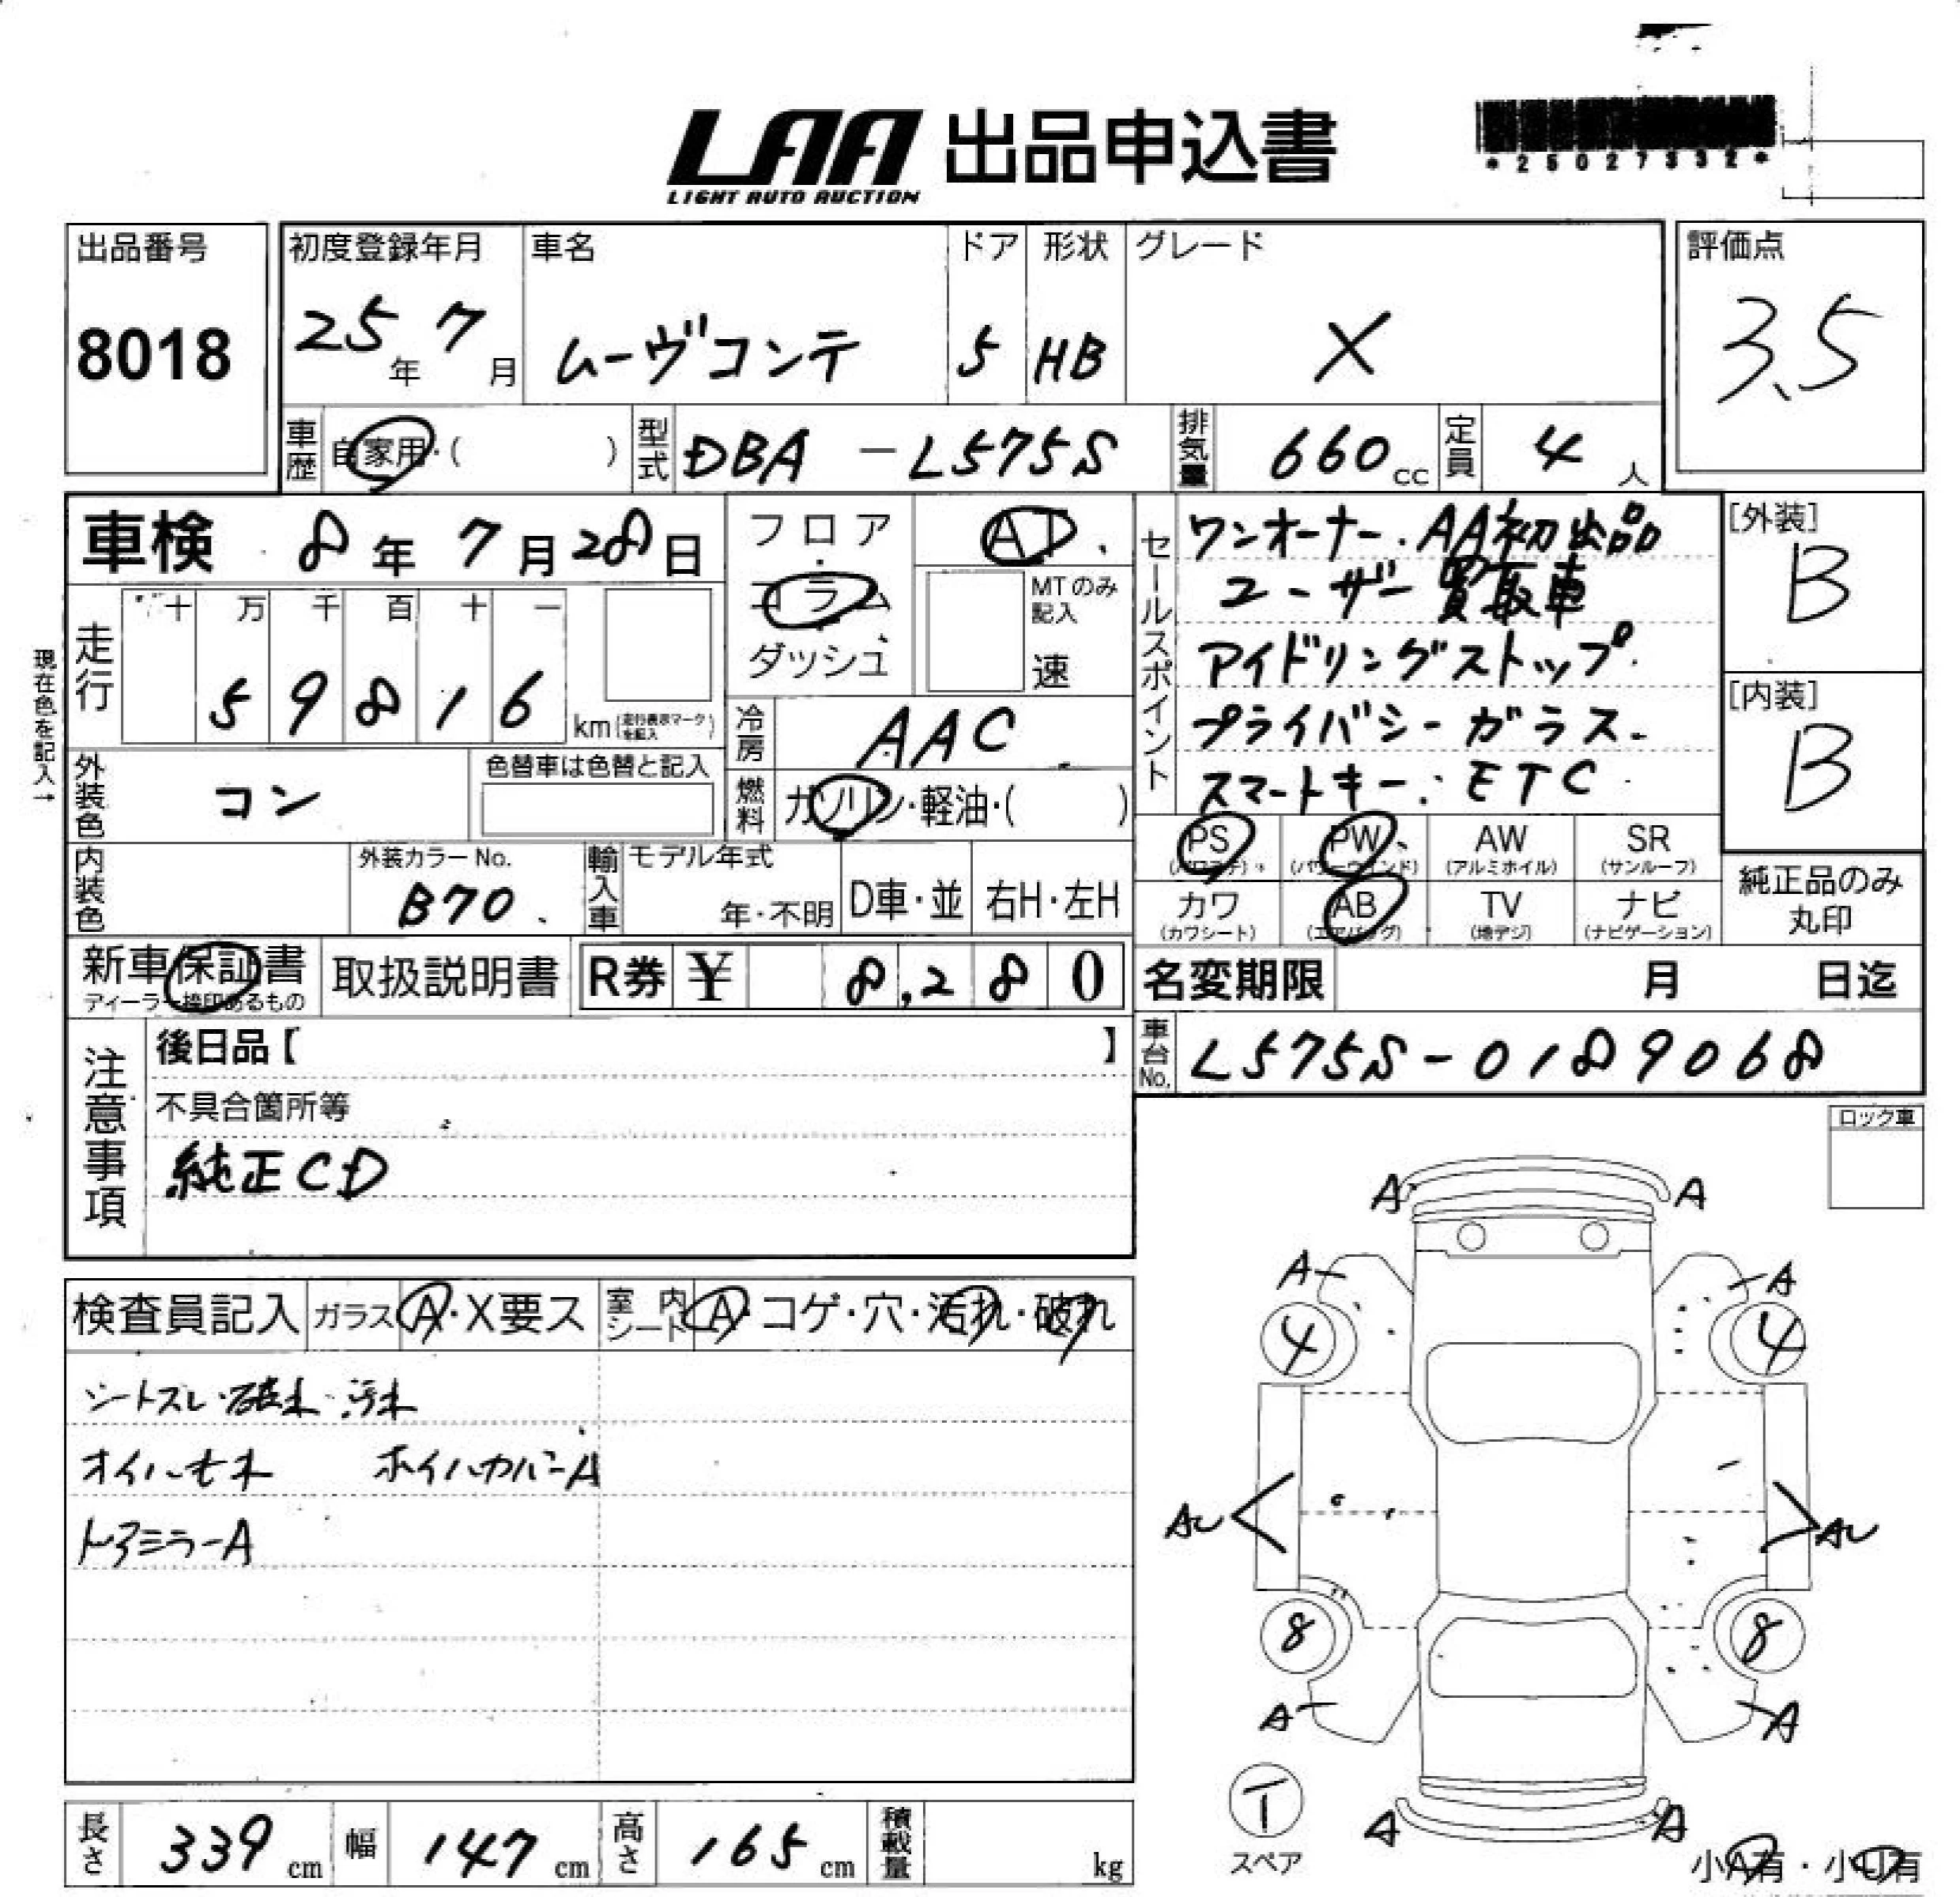 LAA 出品申込書
LIGHT AUTO AUCTION
*25027332*
出品番号
8018
初度登録年月
25年 7月
車名
ムーヴコンテ
ドア
5
形状
HB
グレード
X
評価点
3.5
車歴 自家用・( )
型式 DBA-L575S
排気量 660cc
定員 4人
車検 8年 7月 28日
フロア・コラム・ダッシュ
AT
MTのみ記入
速
セールスポイント
ワンオーナー.AA初出品
ユーザー買取車
アイドリングストップ.
プライバシーガラス.
スマートキー.ETC
[外装]
B
[内装]
B
現在色を記入→
走行
十 万 千 百 十 一
5 9 8 1 6
km(走行表示マークを記入)
冷房 AAC
外装色 コン
色替車は色替と記入
燃料 ガソリン・軽油・( )
PS
PW
AW
(アルミホイル)
SR
(サンルーフ)
カワ
(カワシート)
AB
(エアバッグ)
TV
(地デジ)
ナビ
(ナビゲーション)
純正品のみ
丸印
内装色
外装カラーNo.
B70
輸入車
モデル年式
年・不明
D車・並
右H・左H
新車保証書
ディーラー捺印あるもの
取扱説明書
R券 ¥ 8,280
名変期限 月 日迄
車台No. L575S-0189068
注意事項
後日品【 】
不具合箇所等
純正CD
ロック車
検査員記入
ガラス A・X要ス
室内シート A・コゲ・穴・汚れ・破れ
シートスレ・破れ・汚れ
オイルモレ ホイルカバーA
ドアミラーA
A A
A A
4 4
AU AU
8 8
A A
A A
T
スペア
小A有・小U有
長さ 339cm
幅 147cm
高さ 165cm
積載量 kg